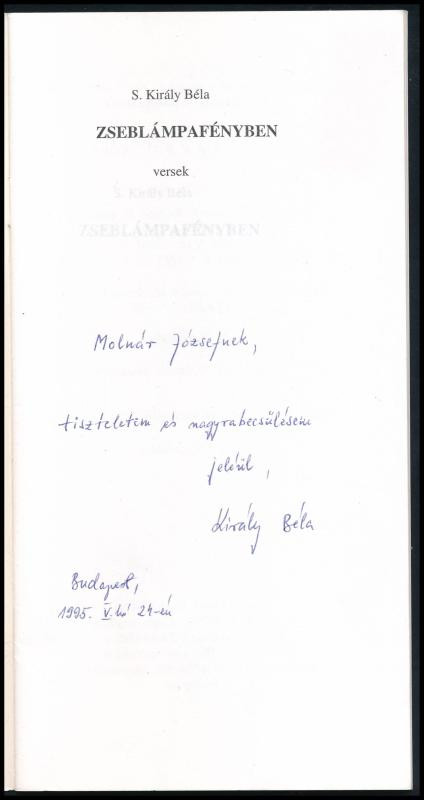 S. Király Béla
ZSEBLÁMPAFÉNYBEN
versek
S. Király Béla
ZSEBLÁMPAFÉNYBEN
Molnár Józsefnek,
tiszteletem és nagyrabecsülésem
jeléül,
Király Béla
Budapest,
1995. V. hó 24-én